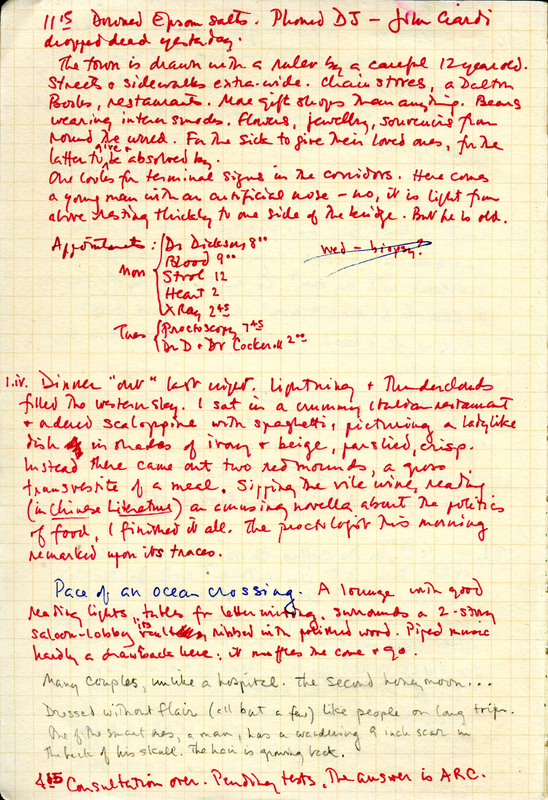 11 15 Downed Epsom salts. Phoned DJ – John Ciardi
dropped dead yesterday.
The town is drawn with a ruler by a careful 12 year old.
Streets & sidewalks extra-wide. Chain stores, a Dalton
Books, restaurants. More gift shops than anything. Bears
wearing intern smocks. Flowers, jewellry, souvenirs from
round the world. For the sick to give their loved ones, for the
latter to give & be absolved by.
One looks for terminal signs in the corridors. Here comes
a young man with an artificial nose – no, it is light from
above resting thickly to one side of the bridge. But he is old.
Appointments: Dr Dickson 8 00
Mon Blood 9 00
Stool 12
Heart 2
X Ray 2 45
Wed – biopsy?
Tues Proctoscopy 7 45
Dr D + Dr Cockerill 2 00
1.iv. Dinner "out" last night. Lightning & thunderclouds
filled the western sky. I sat in a crummy Italian restaurant
& ordered scaloppine with spaghetti, picturing a ladylike
dish in shades of ivory & beige, parslied, crisp.
Instead there came out two red mounds, a gross
transvestite of a meal. Sipping the vile wine, reading
(in Chinese Literature) an amusing novella about the politics
of food, I finished it all. The proctologist this morning
remarked upon its traces.
Pace of an ocean crossing. A lounge with good
reading lights, tables for letter writing, surrounds a 2-story
saloon-lobby, its ribbed with polished wood. Piped music
hardly a drawback here: it muffles the come & go.
Many couples, unlike a hospital. The second honeymoon...
Dressed without flair (all but a few) like people on long trips.
One of the smart ones, a man, has a wandering 9 inch scar in
the back of his skull. The hair is growing back.
4 15 Consultation over. Pending tests, the answer is ARC.